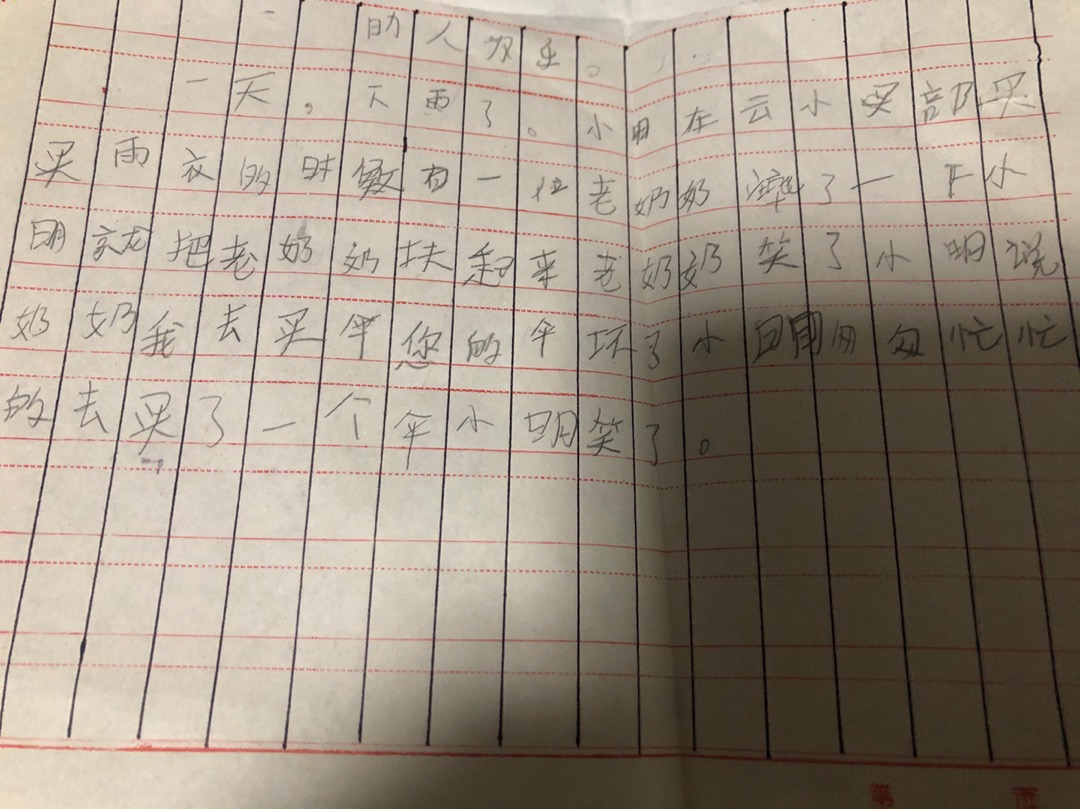 助人为乐。
一天。下雨了。小明在去小卖部买
买雨衣的时候有一位老奶奶摔了一下小
明就把老奶奶扶起来老奶奶笑了小明说
奶奶我去买伞您的伞坏了小明明匆忙忙
的去买了一个伞小明笑了。
第 页